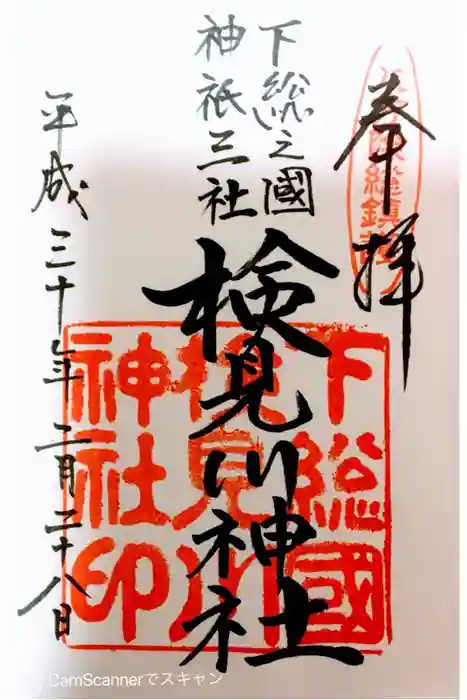 奉拝
除総鎮護
下総之國
神祇三社
検見川神社
下総國
検見川
神社印
平成三十年二月二十八日
CamScannerでスキャン